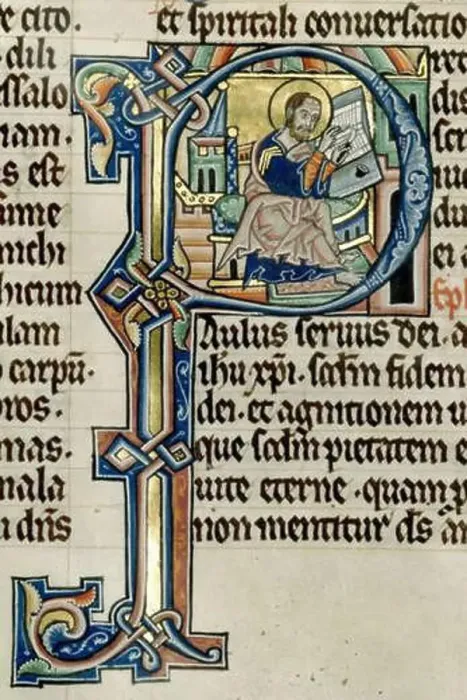 e cito.
dili
ssalo
iam.
s est
sume
michi
hicum
ulam
o carpū.
bros.
nas.
mala
u dn̄s
et spiritali conuersatio
PAulus seruus dei. a
ihu xp̄i. scdm̄ fidem
dei. et agnitionem u
que scdm̄ pietatem e
uite eterne. quam p
non mentitur ds̄ an